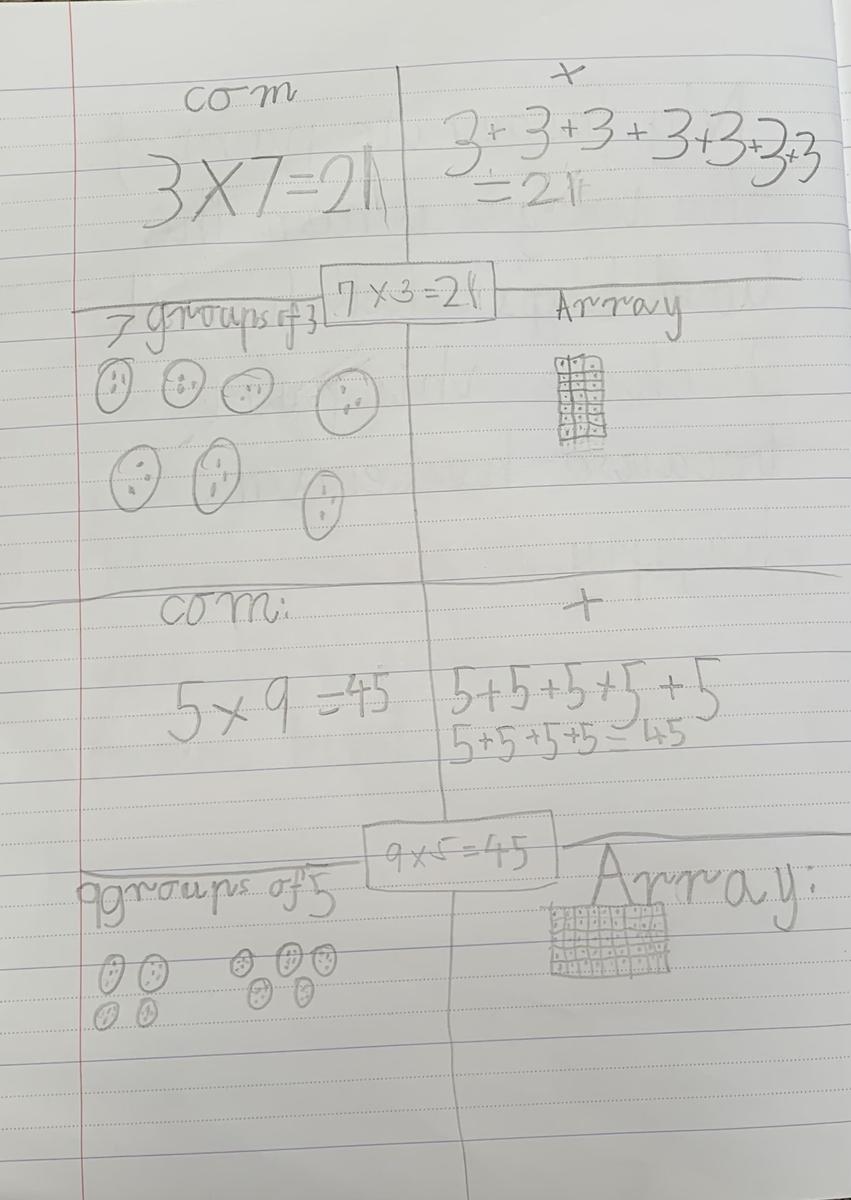 com
3 × 7 = 21
+
3 + 3 + 3 + 3 + 3 + 3 + 3
= 21
7 × 3 = 21
7 groups of 3
Array
com:
5 × 9 = 45
+
5 + 5 + 5 + 5 + 5
5 + 5 + 5 + 5 = 45
9 × 5 = 45
9 groups of 5
Array: